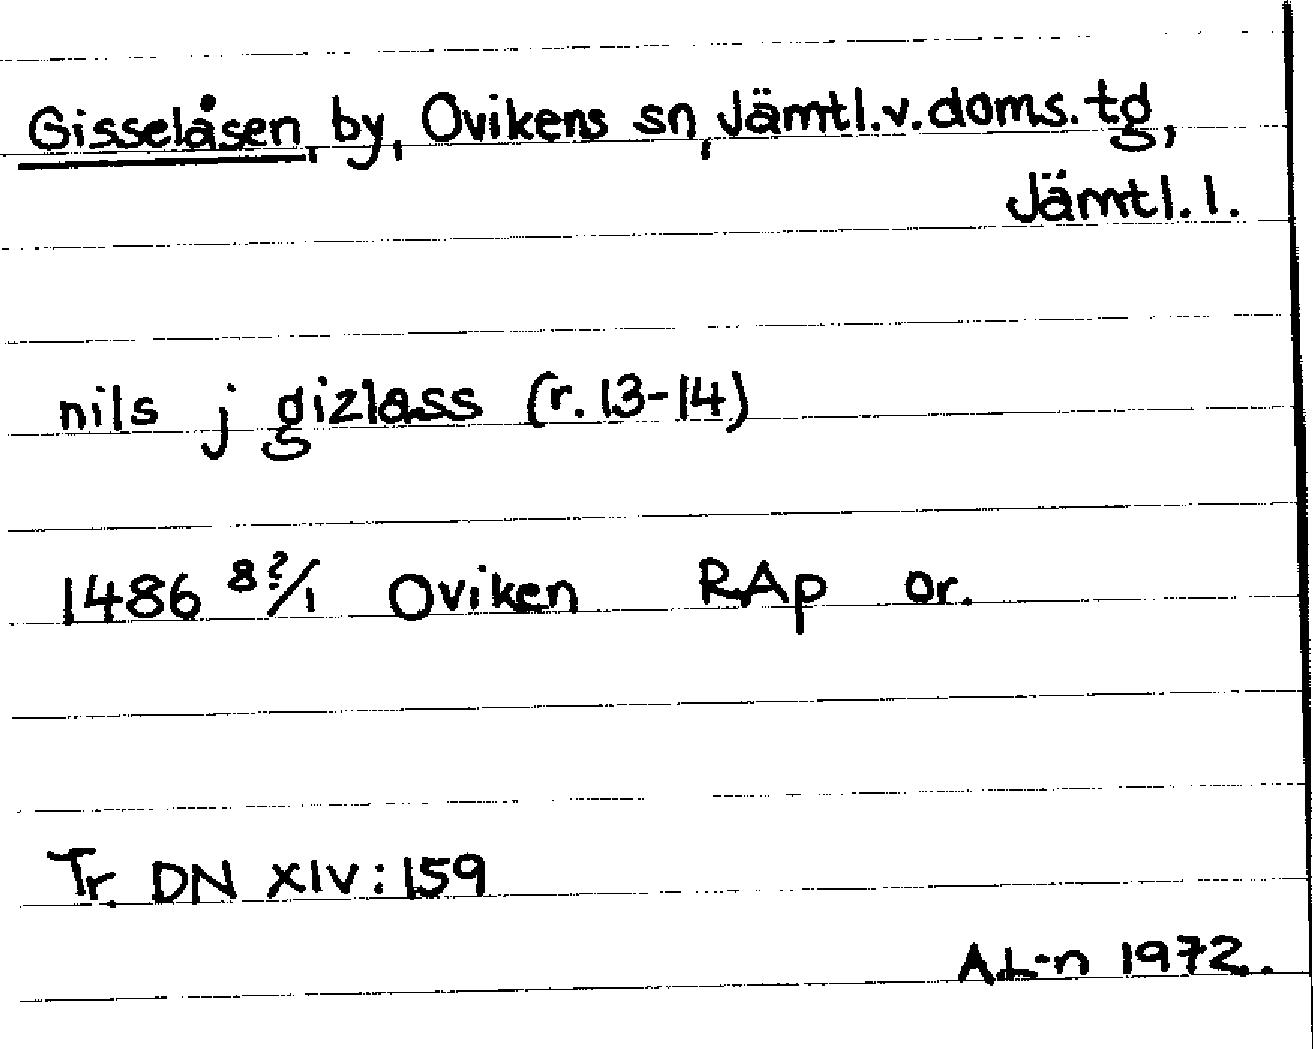 Gisselåsen, by, Ovikens sn, Jämtl.v.doms.tg,
Jämtl. l.
nils j gizlass (r. 13-14)
1486 8?/1 Oviken RAp or.
Tr. DN XIV:159
A.L-n 1972.